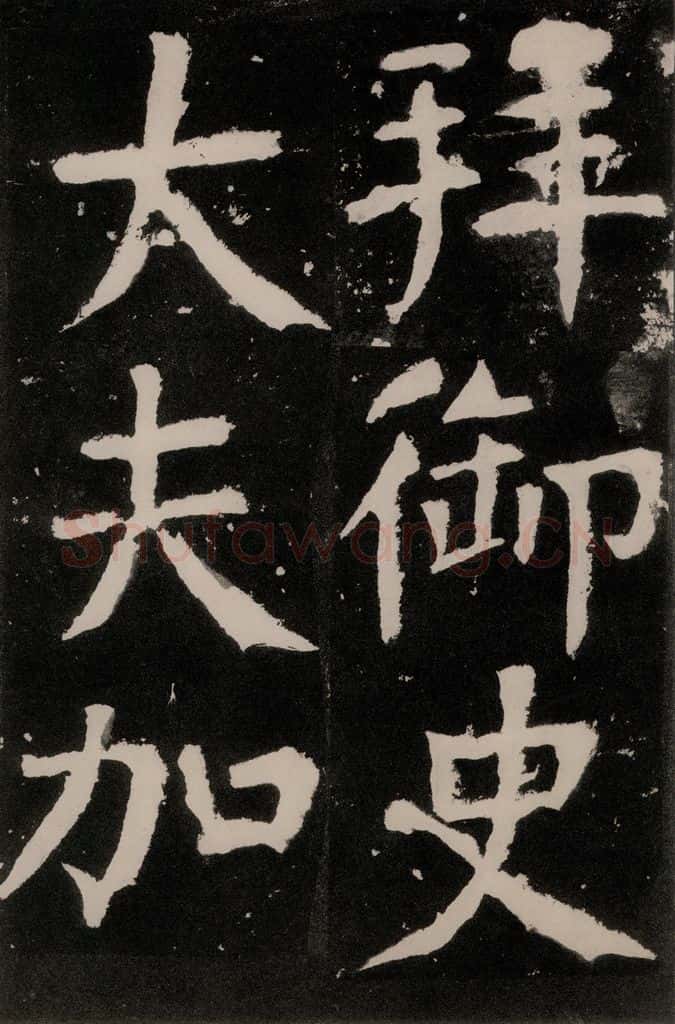 拜御史
大夫加
Shufawang.CN